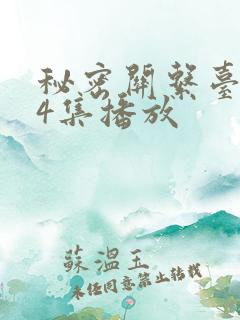 秘密關繫臺
4集播放
蘇溫玉
未经同意禁止转载